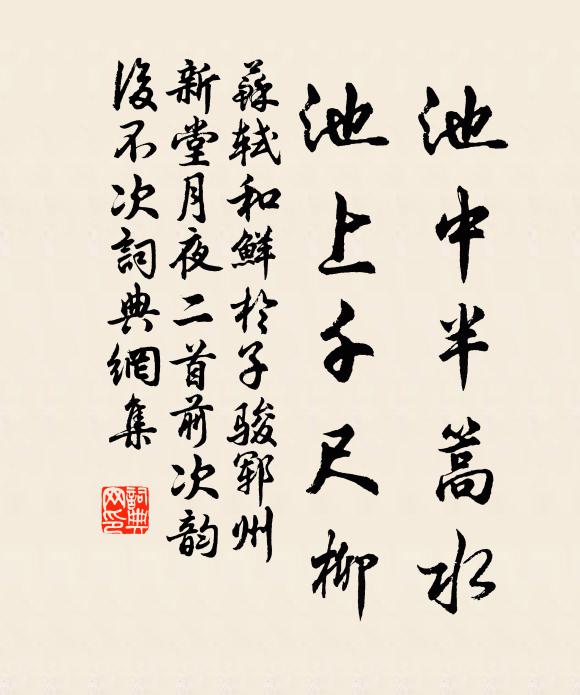 池中半篙水
池上千尺柳
蘇軾和鮮於子駿鄆州
新堂月夜二首前次韵
後不次詞典網集
詞典
网印